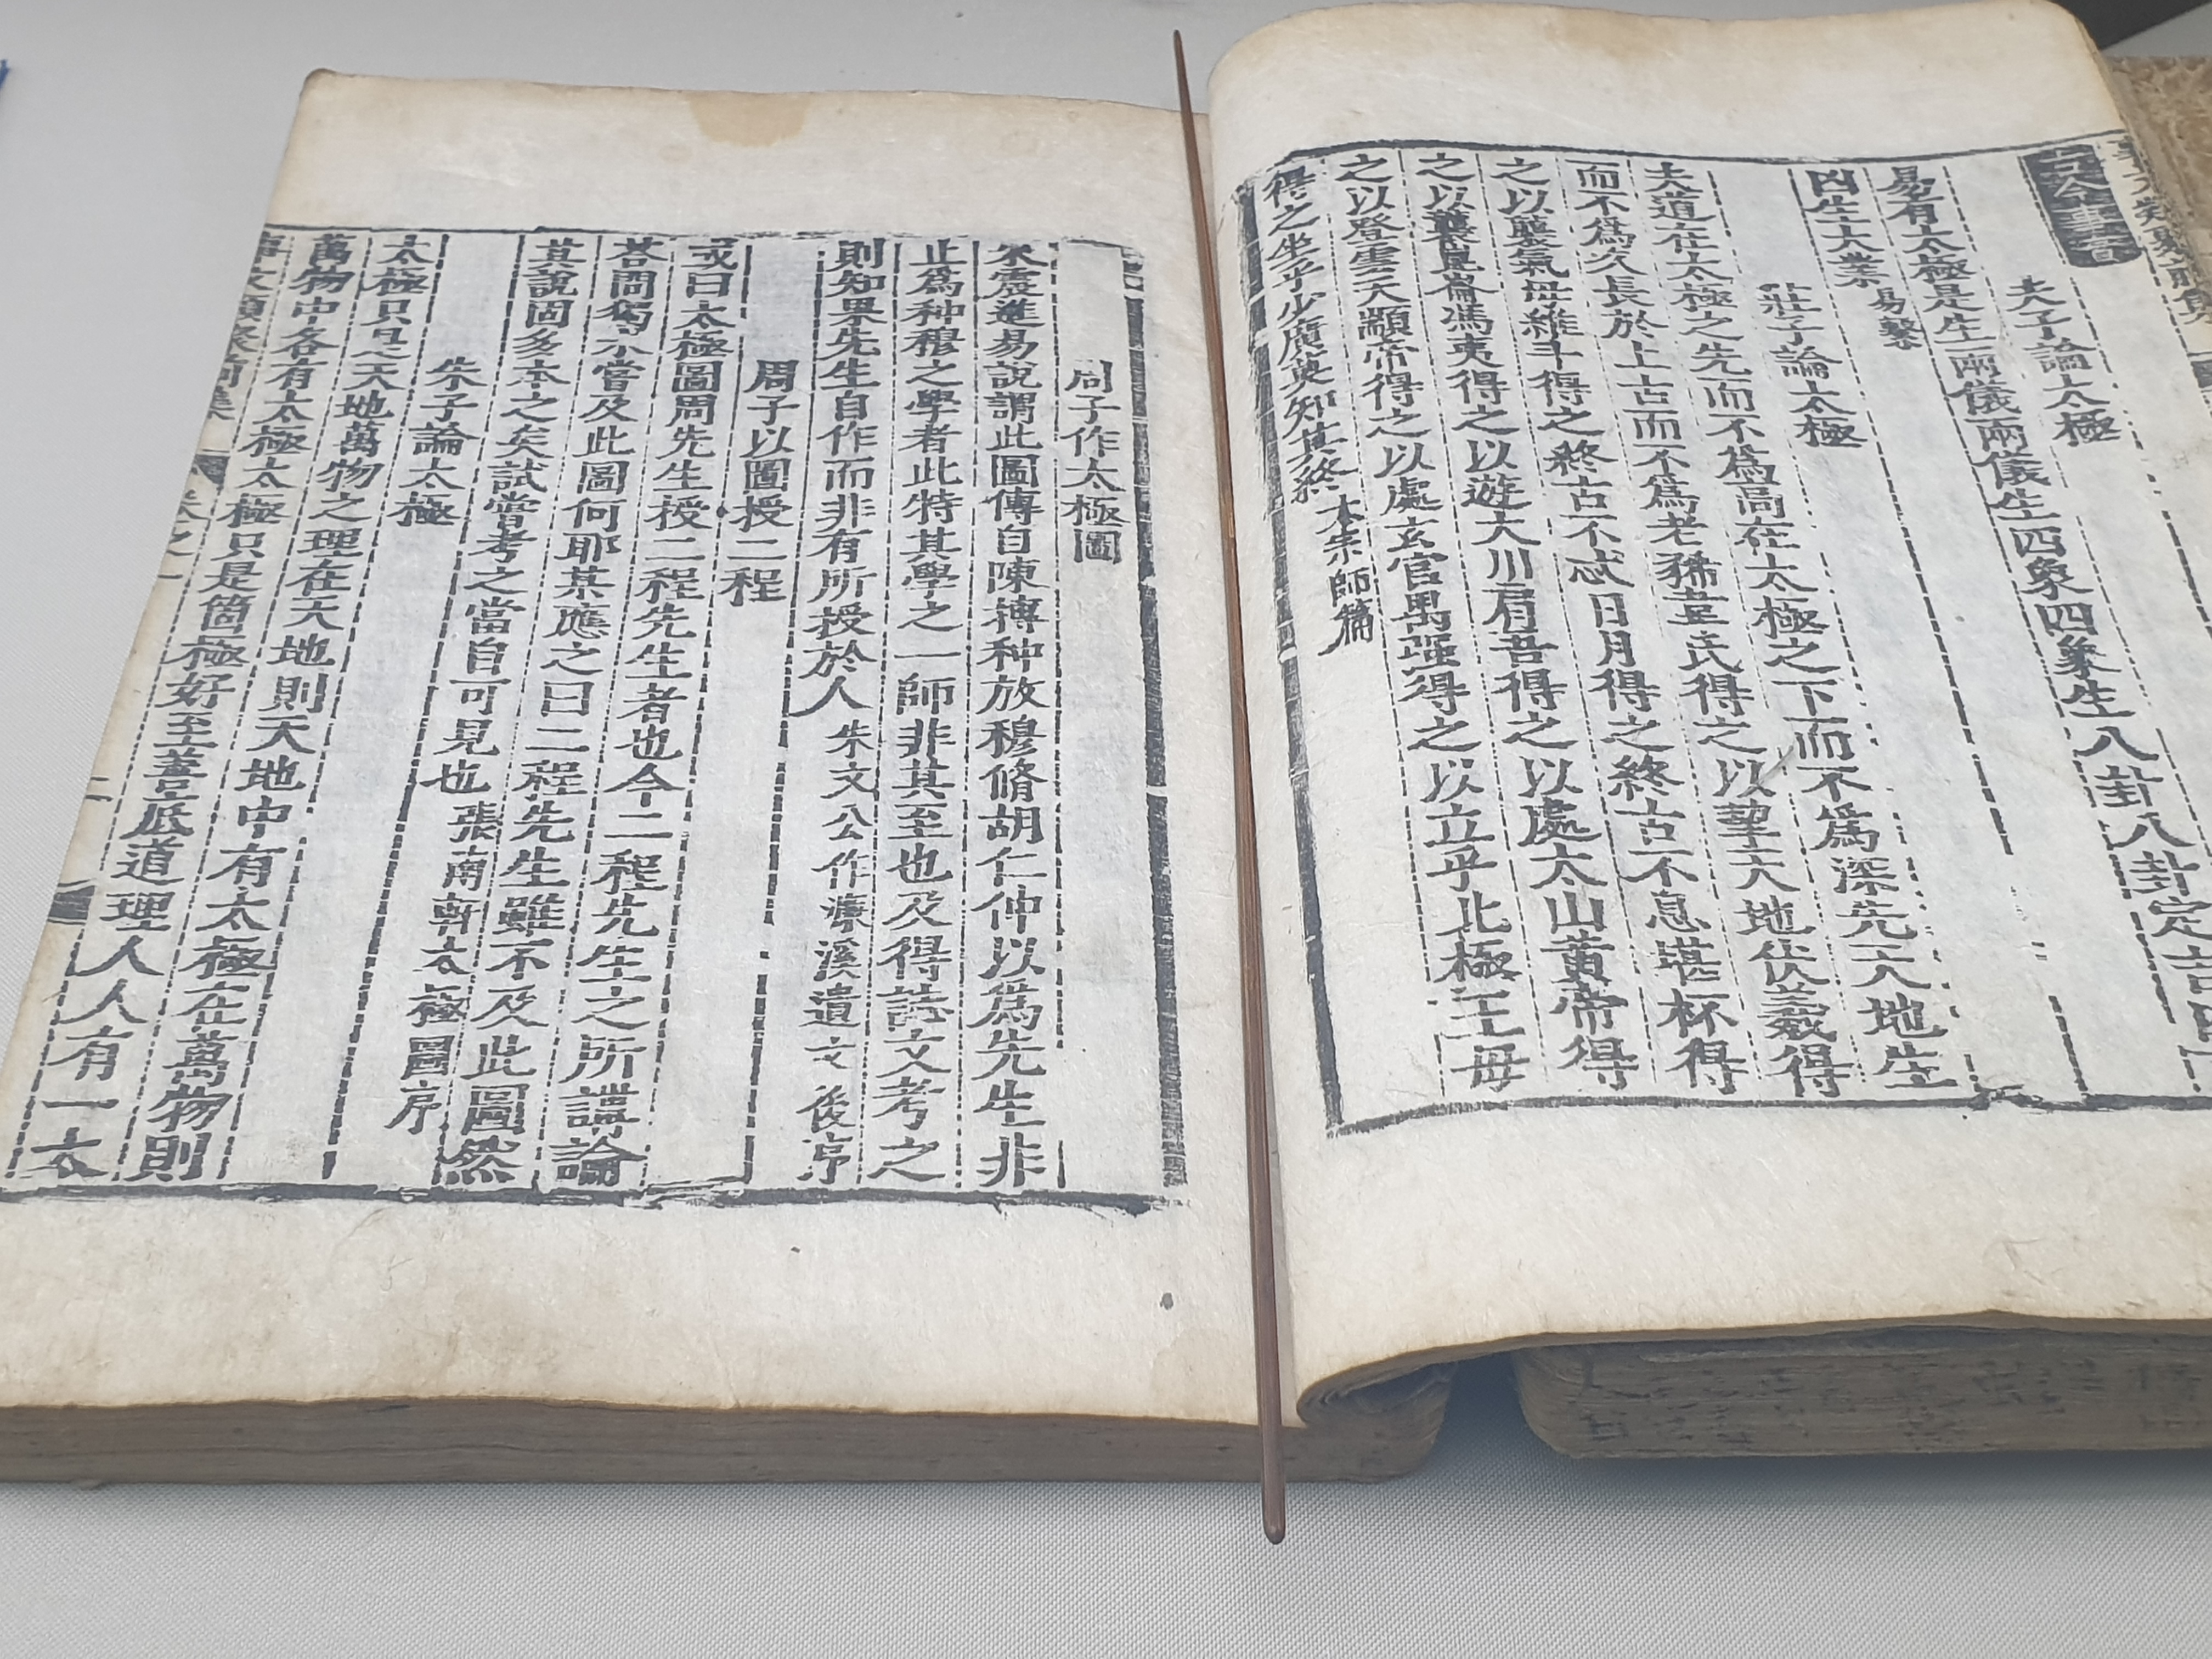 事文類聚前集
古今事實
夫子論太極
易有太極是生兩儀兩儀生四象四象生八卦八卦定吉凶
凶生大業 易繫
莊子論太極
夫道在太極之先而不爲高在太極之下而不爲深先天地生
而不爲久長於上古而不爲老狶韋氏得之以挈天地伏羲得
之以襲氣母維斗得之終古不忒日月得之終古不息堪杯得
之以襲崑崙馮夷得之以遊大川肩吾得之以處太山黃帝得
之以登雲天顓帝得之以處玄宫禺强得之以立乎北極王母
得之坐乎少廣莫知其終 大宗師篇
周子作太極圖
朱震進易說謂此圖傳自陳摶种放穆脩胡仁仲以爲先生非
止爲种穆之學者此特其學之一師非其至也及得誌文考之
則知果先生自作而非有所授於人 朱文公作濂溪遺文後序
周子以圖授二程
或曰太極圖周先生授二程先生者也今二程先生之所講論
荅問獨不嘗及此圖何耶某應之曰二程先生雖不及此圖然
其說固多本之矣試嘗考之當自可見也 張南軒太極圖序
朱子論太極
太極只是天地萬物之理在天地則天地中有太極在萬物則
萬物中各有太極太極只是箇極好至善底道理人人有一太
事文類聚前集 卷之一 二